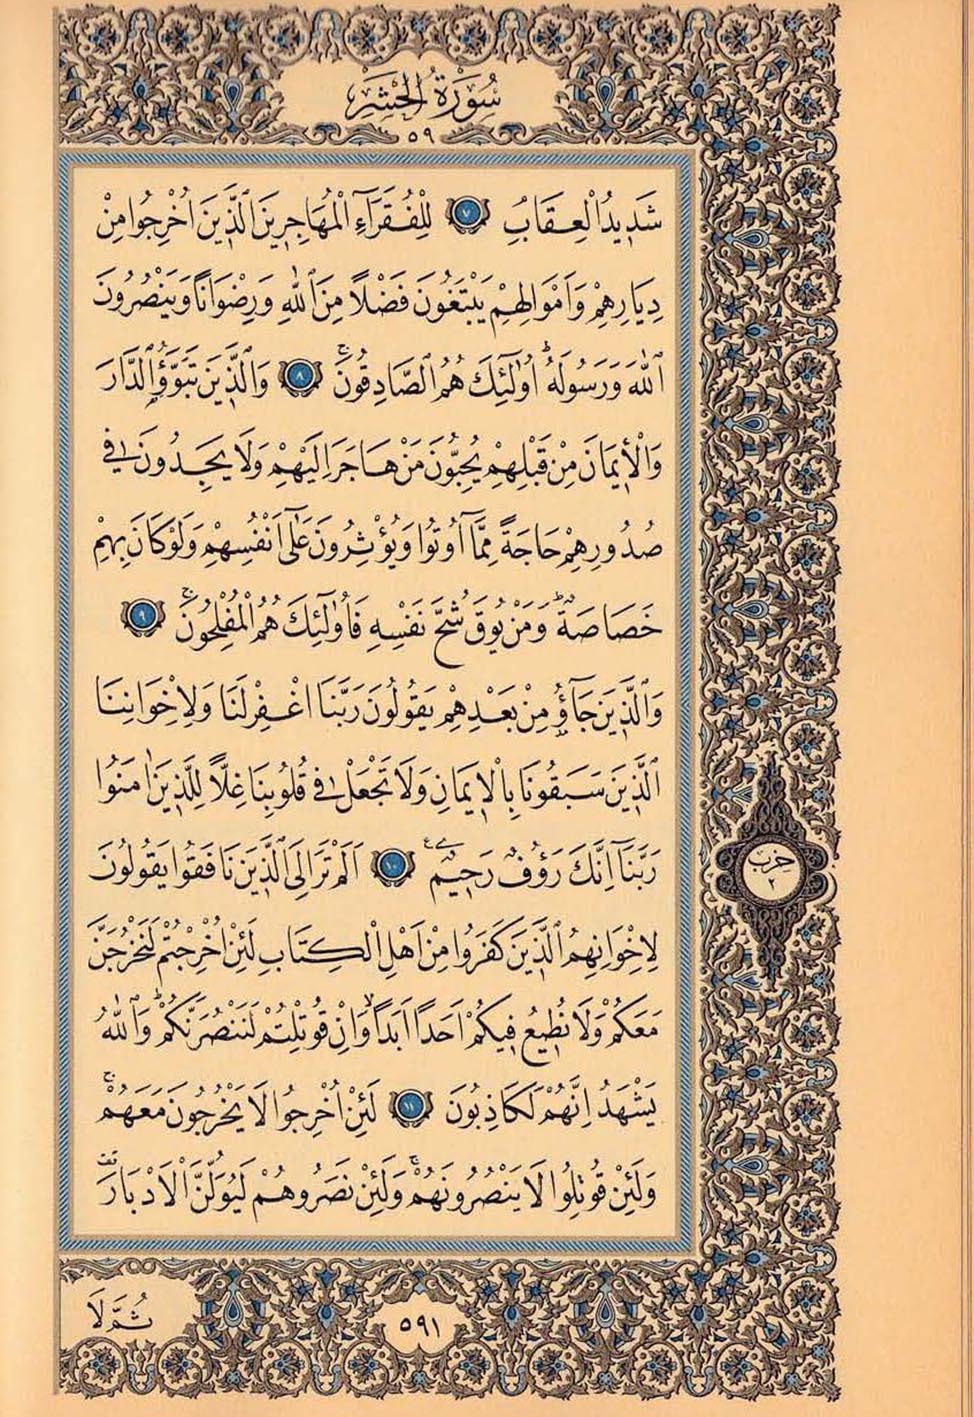 سُورَةُ الْحَشْرِ
٥٩
شَدِيدُ الْعِقَابِ ٧ لِلْفُقَرَآءِ الْمُهَاجِرِينَ الَّذِينَ اُخْرِجُوا مِنْ
دِيَارِهِمْ وَاَمْوَالِهِمْ يَبْتَغُونَ فَضْلًا مِنَ اللّٰهِ وَرِضْوَانًا وَيَنْصُرُونَ
اللّٰهَ وَرَسُولَهُۜ اُو۬لٰٓئِكَ هُمُ الصَّادِقُونَۚ ٨ وَالَّذِينَ تَبَوَّؤُ الدَّارَ
وَالْا۪يمَانَ مِنْ قَبْلِهِمْ يُحِبُّونَ مَنْ هَاجَرَ اِلَيْهِمْ وَلَا يَجِدُونَ ف۪ي
صُدُورِهِمْ حَاجَةً مِمَّٓا اُو۫تُوا وَيُؤْثِرُونَ عَلٰٓى اَنْفُسِهِمْ وَلَوْ كَانَ بِهِمْ
خَصَاصَةٌۜ وَمَنْ يُوقَ شُحَّ نَفْسِه۪ فَاُو۬لٰٓئِكَ هُمُ الْمُفْلِحُونَۚ ٩
وَالَّذِينَ جَآؤُ۫ مِنْ بَعْدِهِمْ يَقُولُونَ رَبَّنَا اغْفِرْ لَنَا وَلِاِخْوَانِنَا
الَّذِينَ سَبَقُونَا بِالْا۪يمَانِ وَلَا تَجْعَلْ ف۪ي قُلُوبِنَا غِلًّا لِلَّذِينَ اٰمَنُوا
رَبَّنَٓا اِنَّكَ رَؤُ۫فٌ رَح۪يمٌ۟ ١٠ اَلَمْ تَرَ اِلَى الَّذِينَ نَافَقُوا يَقُولُونَ
لِاِخْوَانِهِمُ الَّذِينَ كَفَرُوا مِنْ اَهْلِ الْكِتَابِ لَئِنْ اُخْرِجْتُمْ لَنَخْرُجَنَّ
مَعَكُمْ وَلَا نُط۪يعُ ف۪يكُمْ اَحَدًا اَبَدًاۙ وَاِنْ قُوتِلْتُمْ لَنَنْصُرَنَّكُمْۜ وَاللّٰهُ
يَشْهَدُ اِنَّهُمْ لَكَاذِبُونَ ١١ لَئِنْ اُخْرِجُوا لَا يَخْرُجُونَ مَعَهُمْۚ
وَلَئِنْ قُوتِلُوا لَا يَنْصُرُونَهُمْۚ وَلَئِنْ نَصَرُوهُمْ لَيُوَلُّنَّ الْاَدْبَارَ
حزب
٢
ثُمَّ لَا
٥٩١